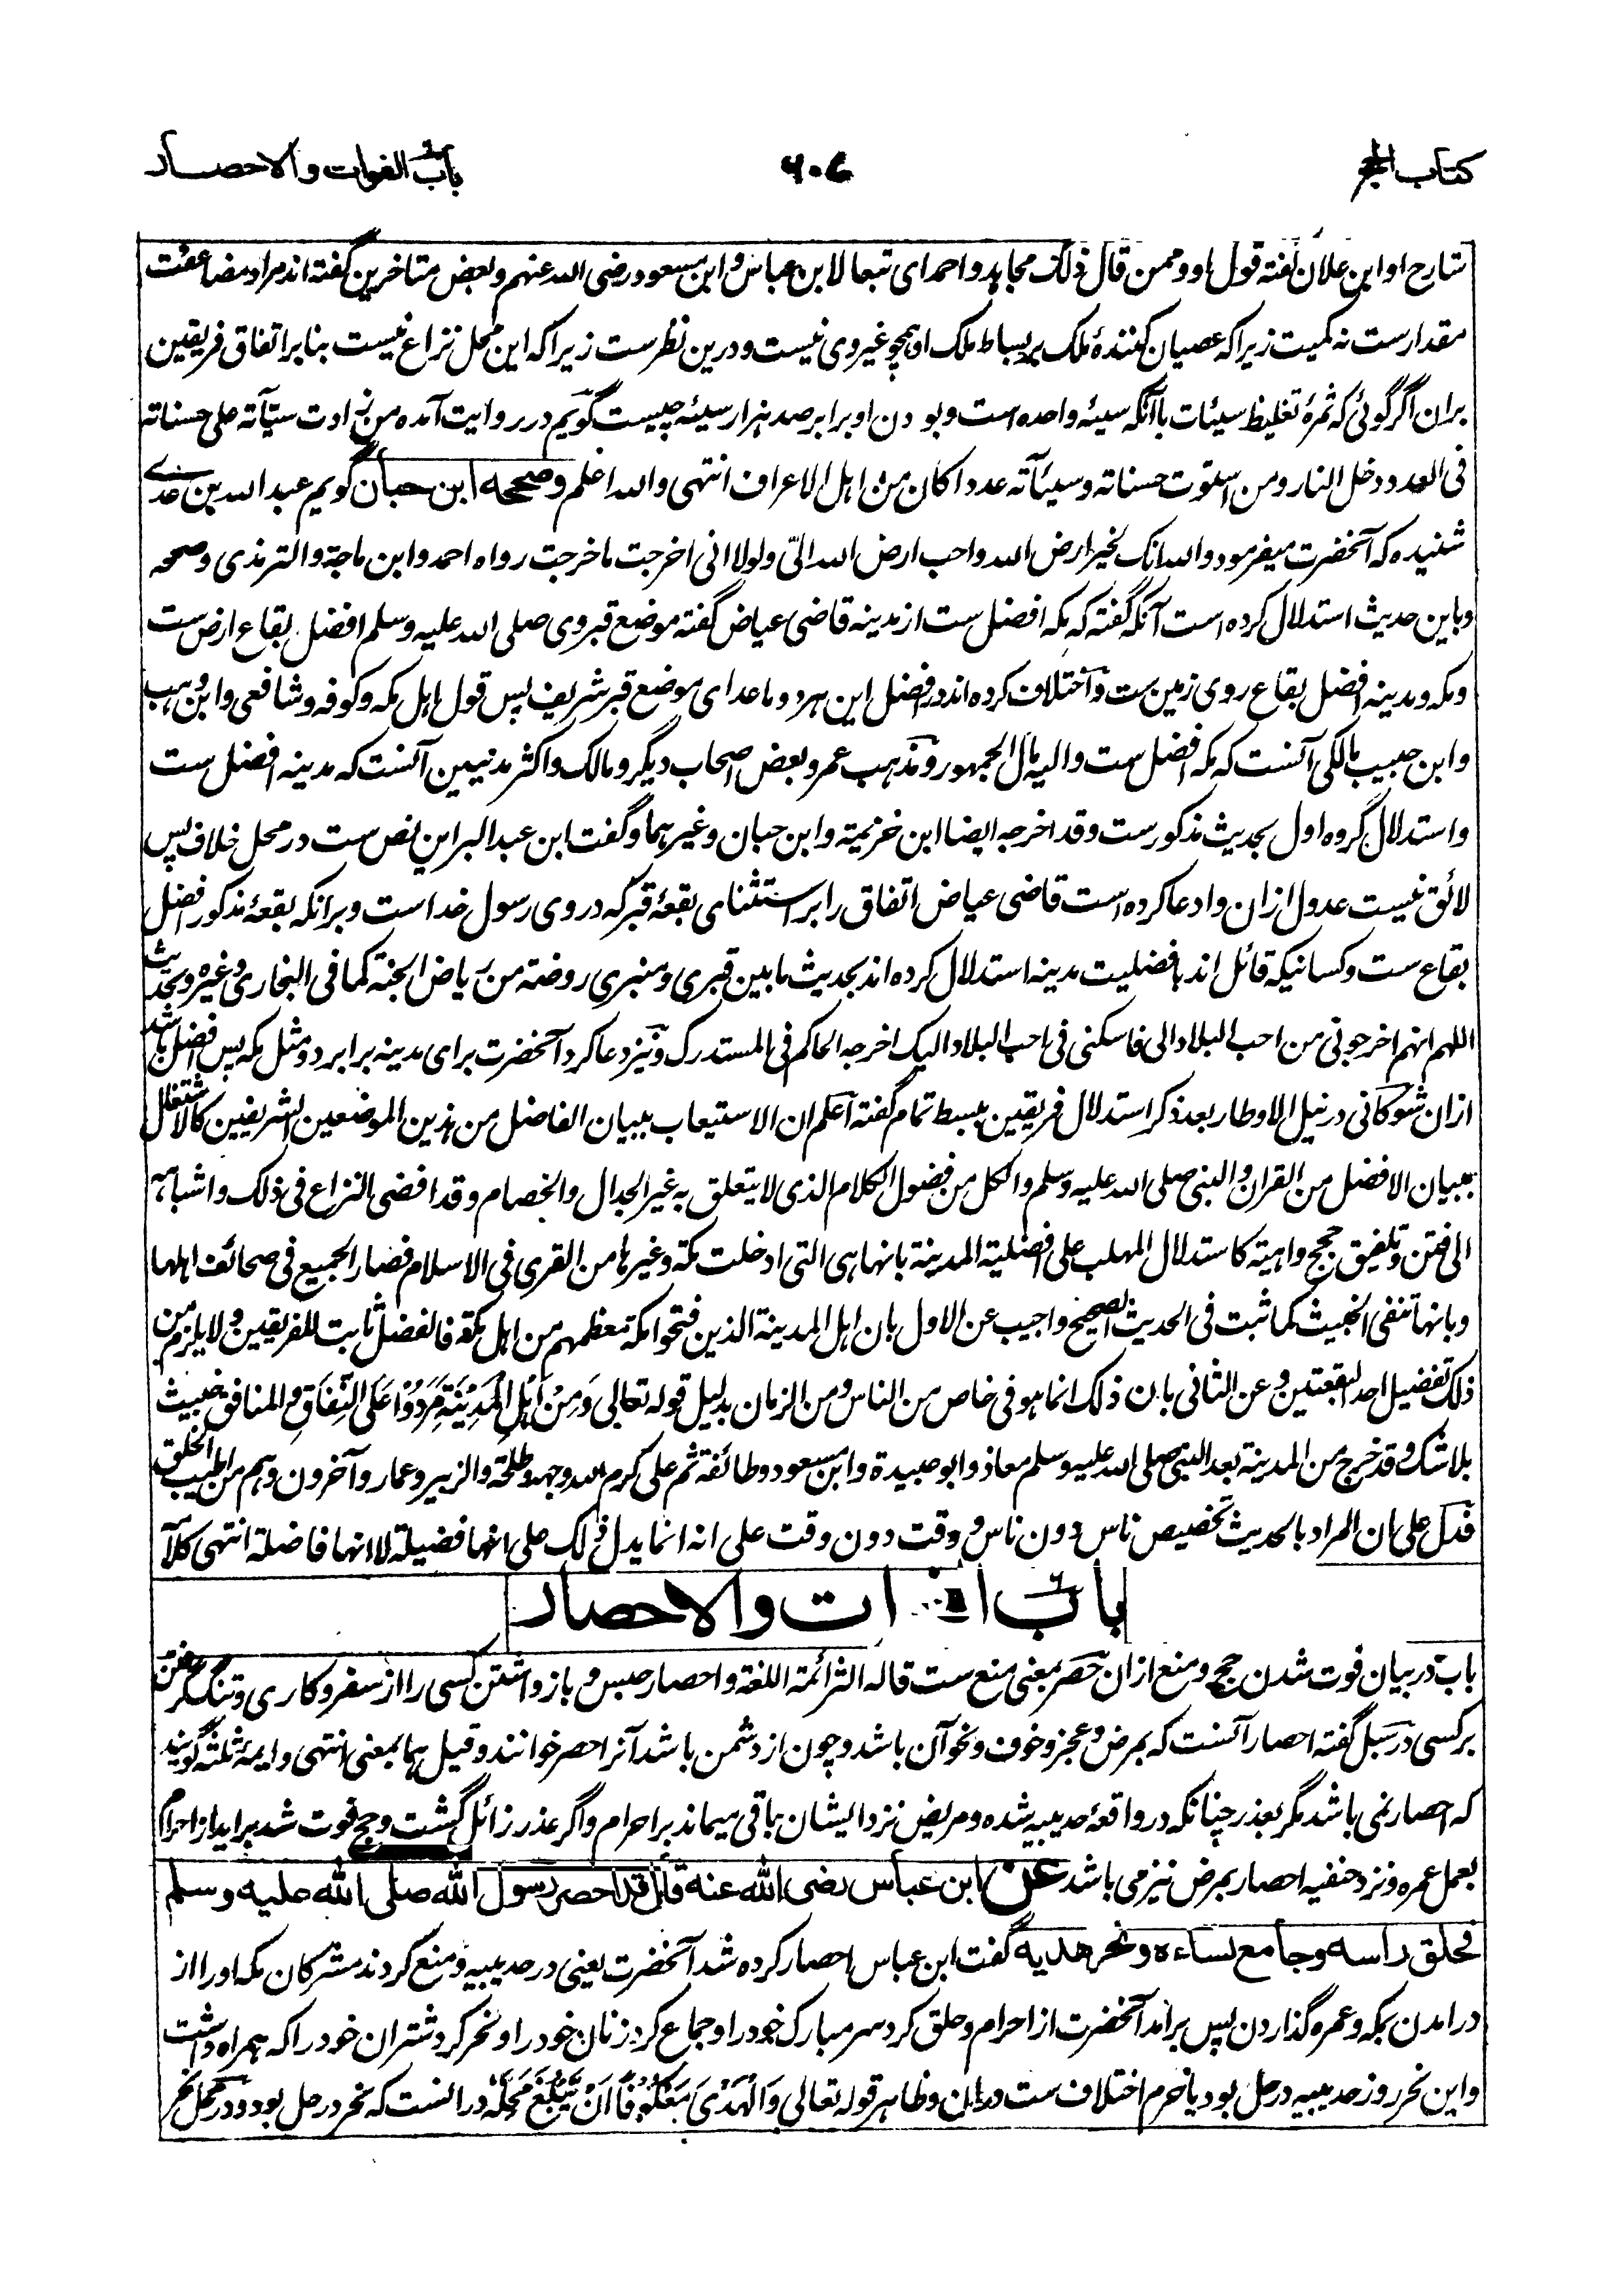 کتاب الحج
۶۰۷
باب الفوات والاحصار
شارح او ابن علان گفته قول او وممن قال ذلک مجاہد واحمد ای تبعا لابن عباس وابن مسعود رضی اللہ عنہم وبعض متاخرین گفته اند مراد مضاعفت
مقدارست نہ کمیت زیرا کہ عصیان کنندۂ ملک بر بساط ملک او ہمچو غیر وی نیست ودرین نظرست زیرا کہ این محل نزاع نیست بنا بر اتفاق فریقین
بران اگر گوئی کہ ثمرۂ تغلیظ سیئات باآنکہ سیئہ واحدہ است وبودن او برابر صد ہزار سیئہ چیست گویم در روایت آمدہ من زادت سیآتہ علی حسناتہ
فی العدد دخل النار ومن استوت حسناتہ وسیئآتہ عددا کان من اہل الاعراف انتہی واللہ اعلم وصححه ابن حبان گویم عبد اللہ بن عدی
شنیدہ کہ آنحضرت میفرمود واللہ انک لخیر ارض اللہ واحب ارض اللہ الیّ ولولا انی اخرجت ما خرجت رواہ احمد وابن ماجة والترمذی وصححہ
وباین حدیث استدلال کردہ است آنکہ گفتہ کہ مکہ افضل ست از مدینہ قاضی عیاض گفتہ موضع قبر وی صلی اللہ علیہ وسلم افضل بقاع ارض ست
ومکہ ومدینہ افضل بقاع روی زمین ست واختلاف کردہ اند در افضل این ہر دو ماعدای موضع قبر شریف پس قول اہل مکہ وکوفہ وشافعی وابن وہب
وابن حبیب مالکی آنست کہ مکہ افضل ست والیہ مال الجمہور ومذہب عمر وبعض اصحاب دیگر ومالک واکثر مدنیین آنست کہ مدینہ افضل ست
واستدلال گروہ اول بحدیث مذکورست وقد اخرجہ ایضا ابن خزیمة وابن حبان وغیرہما وگفت ابن عبد البر این نص ست در محل خلاف پس
لائق نیست عدول ازان وادعا کردہ است قاضی عیاض اتفاق را بر استثنای بقعۂ قبر کہ در وی رسول خداست وبرانکہ بقعۂ مذکور افضل
بقاع ست وکسانیکہ قائل اند بافضلیت مدینہ استدلال کردہ اند بحدیث ما بین قبری ومنبری روضة من ریاض الجنة کما فی البخاری وغیرہ وبحدیث
اللہم انہم اخرجونی من احب البلاد الی فاسکنی فی احب البلاد الیک اخرجہ الحاکم فی المستدرک ونیز دعا کرد آنحضرت برای مدینہ برابر دو مثل مکہ پس افضل باشد
ازان شوکانی در نیل الاوطار بعد ذکر استدلال فریقین ببسط تمام گفتہ اعلم ان الاستیعاب ببیان الفاضل من ہذین الموضعین الشریفین کالاشتغال
ببیان الافضل من القران والنبی صلی اللہ علیہ وسلم والکل من فضول الکلام الذی لا یتعلق بہ غیر الجدال والخصام وقد افضی النزاع فی ذلک واشباہہ
الی فتن وتلفیق حجج واہیة کاستدلال المہلب علی افضلیة المدینة بانہا ہی التی ادخلت مکة وغیرہا من القری فی الاسلام فصار الجمیع فی صحائف اہلہا
وبانہا تنفی الخبیث کما ثبت فی الحدیث الصحیح واجیب عن الاول بان اہل المدینة الذین فتحوا مکة معظمہم من اہل مکة فالفضل ثابت للفریقین ولا یلزم من
ذلک تفضیل احد البقعتین وعن الثانی بان ذلک انما ہو فی خاص من الناس ومن الزمان بدلیل قولہ تعالی وَمِنْ اَہْلِ الْمَدِیْنَةِ مَرَدُوْا عَلَی النِّفَاقِ والمنافق خبیث
بلا شک وقد خرج من المدینة بعد النبی صلی اللہ علیہ وسلم معاذ وابو عبیدة وابن مسعود وطائفة ثم علی کرم اللہ وجہہ وطلحة والزبیر وعمار وآخرون وہم من اطیب الخلق
فدل علی ان المراد بالحدیث تخصیص ناس دون ناس ووقت دون وقت علی انہ انما یدل ذلک علی انہا فضیلة لا انہا فاضلة انتہی کلامہ
باب ا ات والاحصار
باب در بیان فوت شدن حج ومنع ازان حصر بمعنی منع ست قالہ اکثر ائمة اللغة واحصار حبس وباز داشتن کسی را از سفر وکاری وتنگ گرفتن
بر کسی در سبل گفتہ احصار آنست کہ بمرض وعجز وخوف ونحو آن باشد وچون از دشمن باشد آنرا حصر خوانند وقیل ہما بمعنی انتہی وایمۂ ثلثہ گویند
کہ احصار نمی باشد مگر بعذر چنانکہ در واقعۂ حدیبیہ شدہ ومریض نزد ایشان باقی میماند بر احرام واگر عذر زائل گشت وحج فوت شد برایداز احرام
بعمل عمرہ ونزد حنفیہ احصار بمرض نیز می باشد عن ابن عباس رضی الله عنه قال قد احصر رسول الله صلی الله علیه وسلم
فحلق راسه وجامع نساءه ونحر هدیه گفت ابن عباس احصار کردہ شد آنحضرت یعنی در حدیبیہ ومنع کردند مشرکان مکہ او را از
درامدن بمکہ وعمرہ گذاردن پس برامد آنحضرت از احرام وحلق کرد سر مبارک خود را وجماع کرد زنان خود را ونحر کرد شتران خود را کہ ہمراہ داشت
واین نحر روز حدیبیہ در حل بود یا حرم اختلاف ست دران وظاہر قولہ تعالی وَالْہَدْیَ مَعْکُوْفًا اَنْ یَّبْلُغَ مَحِلَّہٗ درانست کہ نحر در حل بود ودر محل نحر